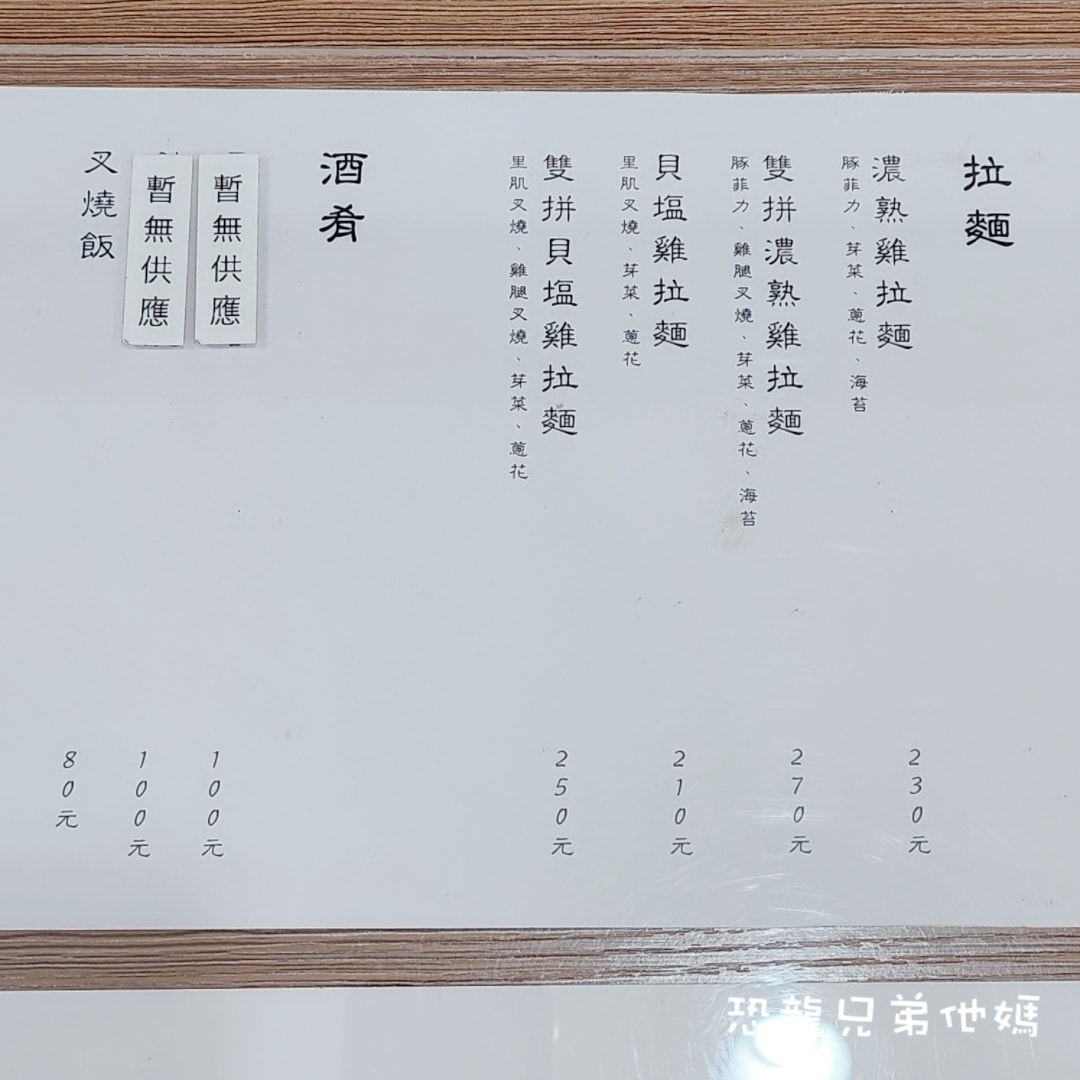 拉麵
濃熟雞拉麵
豚菲力、芽菜、蔥花、海苔
230元
雙拼濃熟雞拉麵
豚菲力、雞腿叉燒、芽菜、蔥花、海苔
270元
貝塩雞拉麵
里肌叉燒、芽菜、蔥花
210元
雙拼貝塩雞拉麵
里肌叉燒、雞腿叉燒、芽菜、蔥花
250元
酒肴
暫無供應
100元
暫無供應
100元
叉燒飯
80元
恐龍兄弟他媽